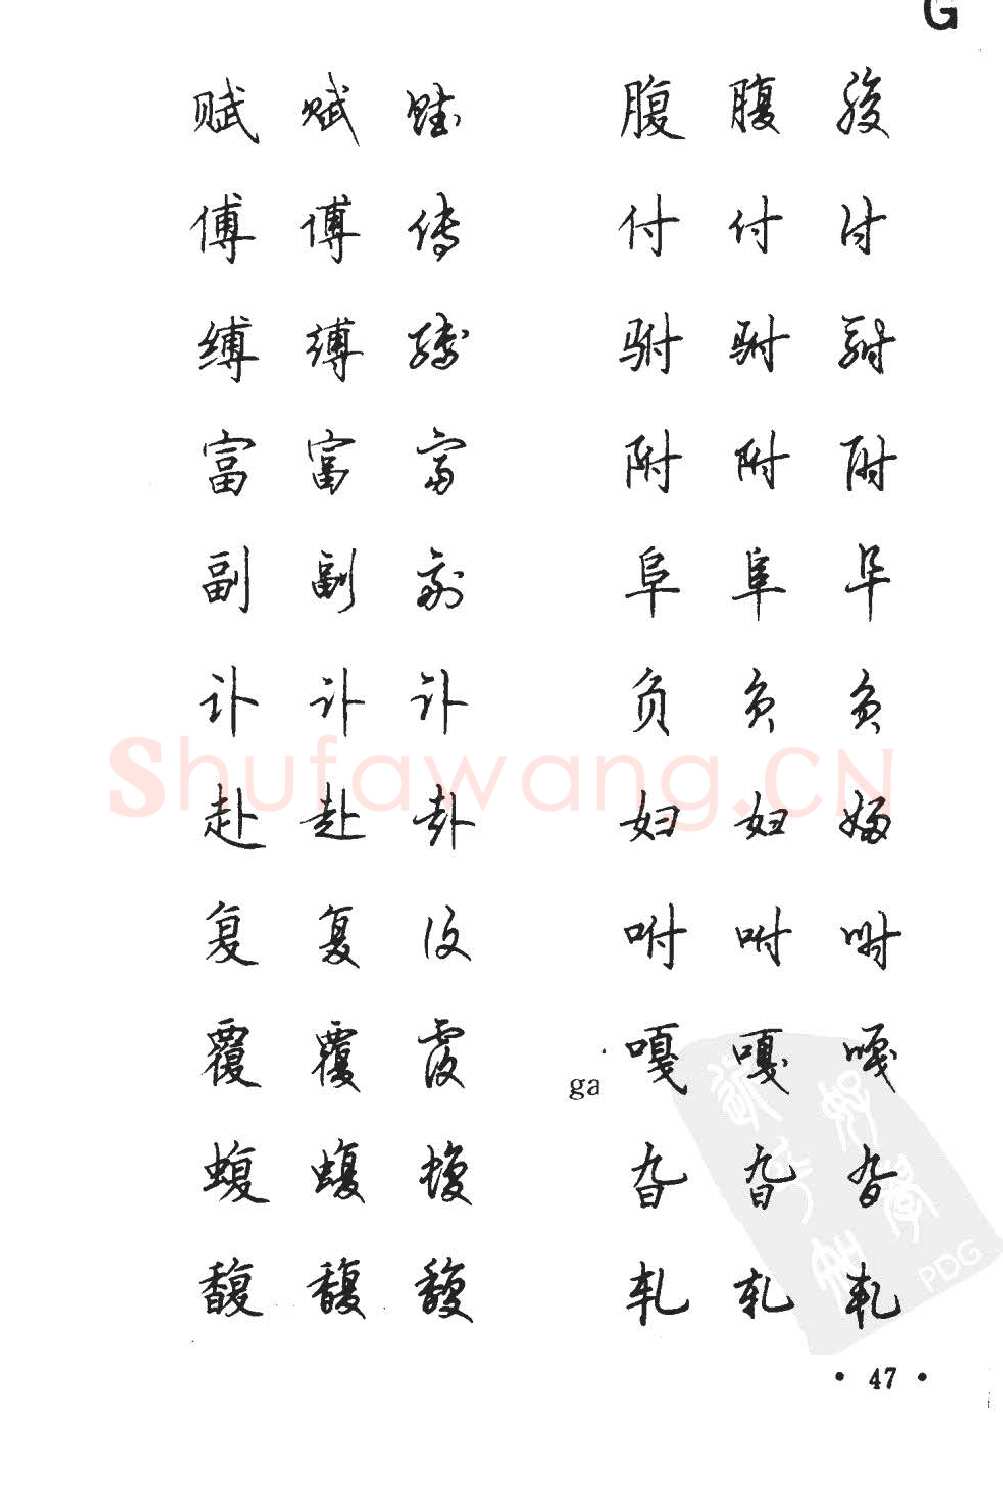 G
赋 赋 赋 腹 腹 腹
傅 傅 傅 付 付 付
缚 缚 缚 驸 驸 驸
富 富 富 附 附 附
副 副 副 阜 阜 阜
讣 讣 讣 负 负 负
Shufawang.CN
赴 赴 赴 妇 妇 妇
复 复 复 咐 咐 咐
覆 覆 覆 ga 嘎 嘎 嘎
蝮 蝮 蝮 旮 旮 旮
馥 馥 馥 轧 轧 轧
PDG
• 47 •